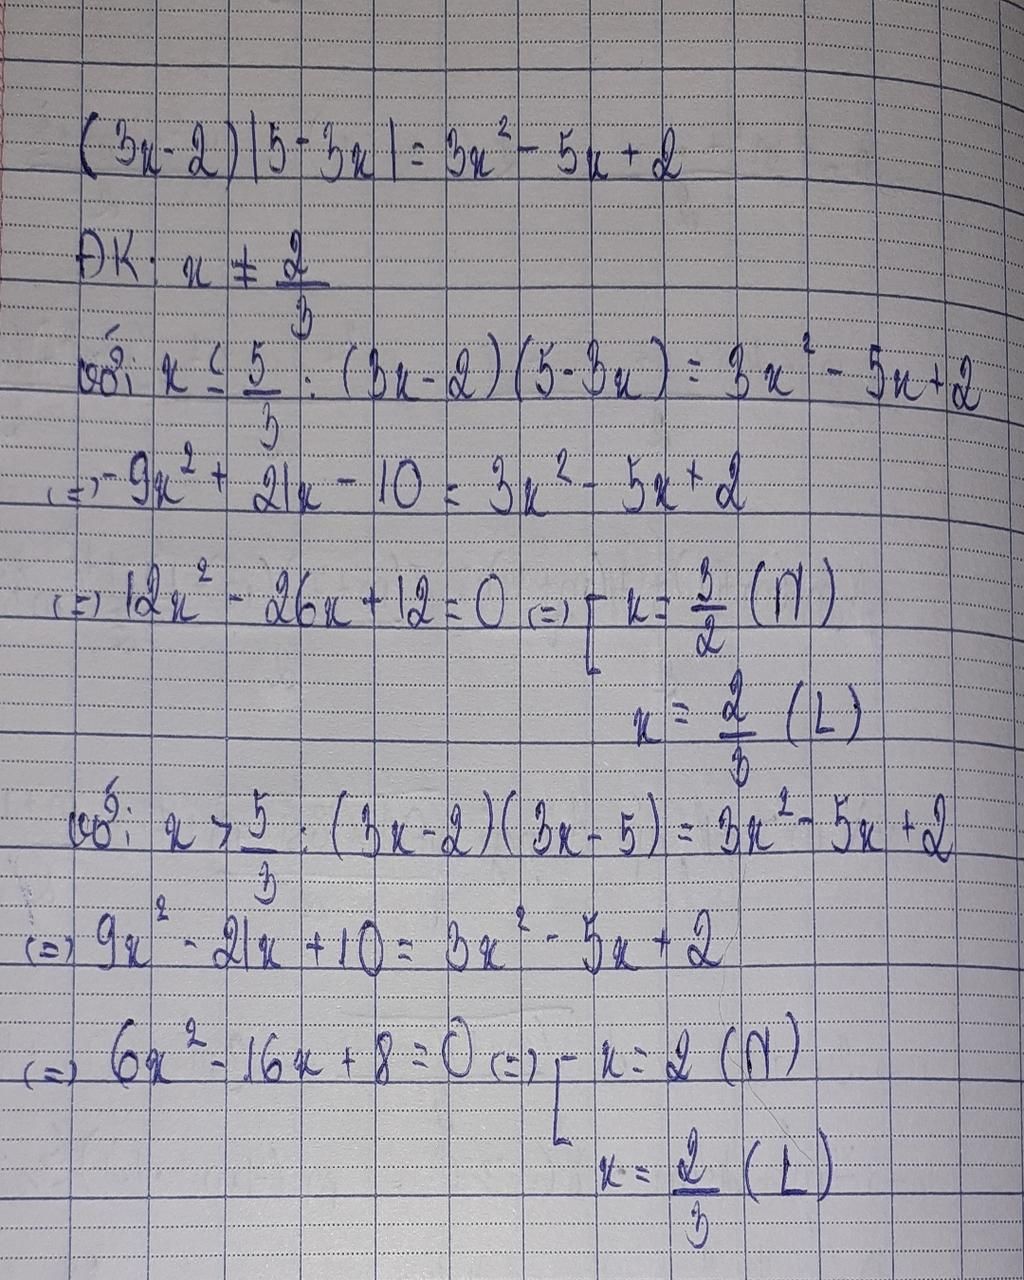 (3x-2)|5-3x| = 3x² - 5x + 2
ĐK: x ≠ 2/3
với x ≤ 5/3 : (3x-2)(5-3x) = 3x² - 5x + 2
(=) -9x² + 21x - 10 = 3x² - 5x + 2
(=) 12x² - 26x + 12 = 0 (=) [ x = 3/2 (N)
x = 2/3 (L)
với x > 5/3 : (3x-2)(3x-5) = 3x² - 5x + 2
(=) 9x² - 21x + 10 = 3x² - 5x + 2
(=) 6x² - 16x + 8 = 0 (=) [ x = 2 (N)
x = 2/3 (L)